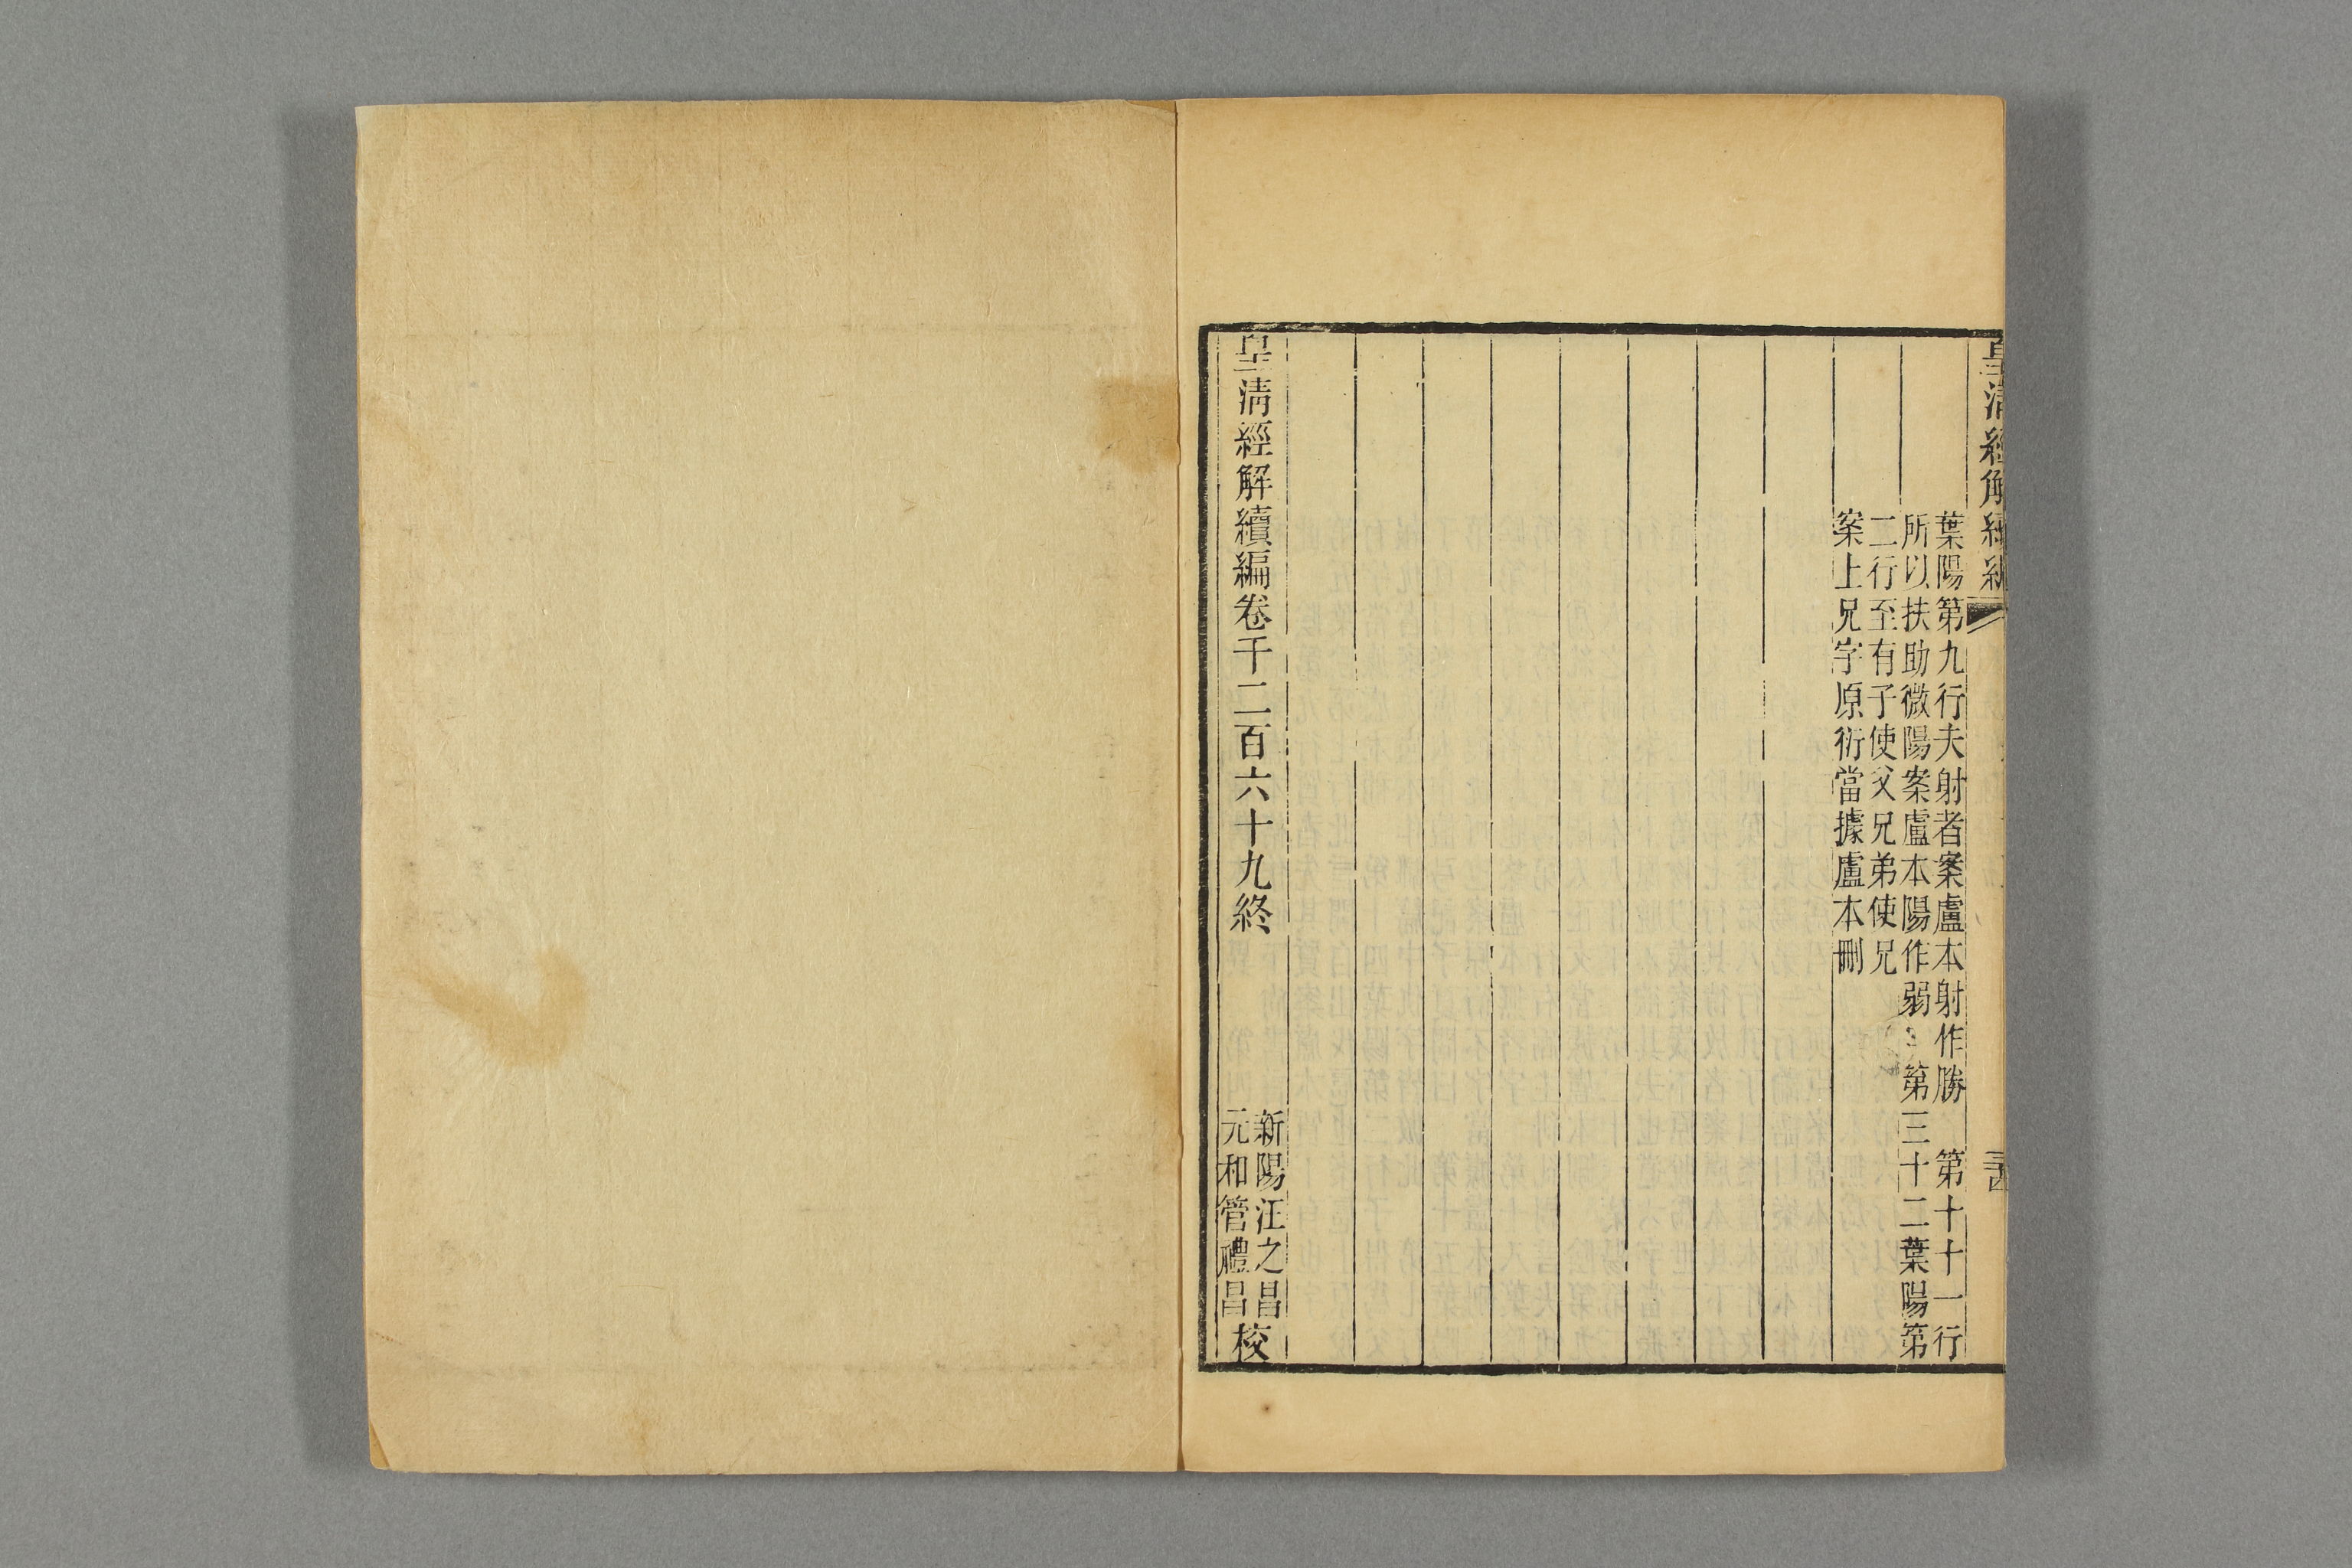 皇清經解續編
葉陽第九行夫射者案盧本射作勝　第十十一行
所以扶助微陽案盧本陽作弱　第三十二葉陽第
二行至有子使父兄弟使兄
案上兄字原衍當據盧本刪
皇清經解續編卷千二百六十九終
新陽汪之昌
元和管禮昌校